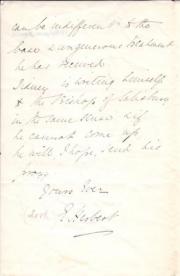 can be indifferent to the
base & ungenerous treatment
he has received
Sidney is writing himself
& the Bishop of Salisbury
in the same sense & if
he cannot come up
he will, I hope, send his
proxy
Yours Ever
E. Herbert